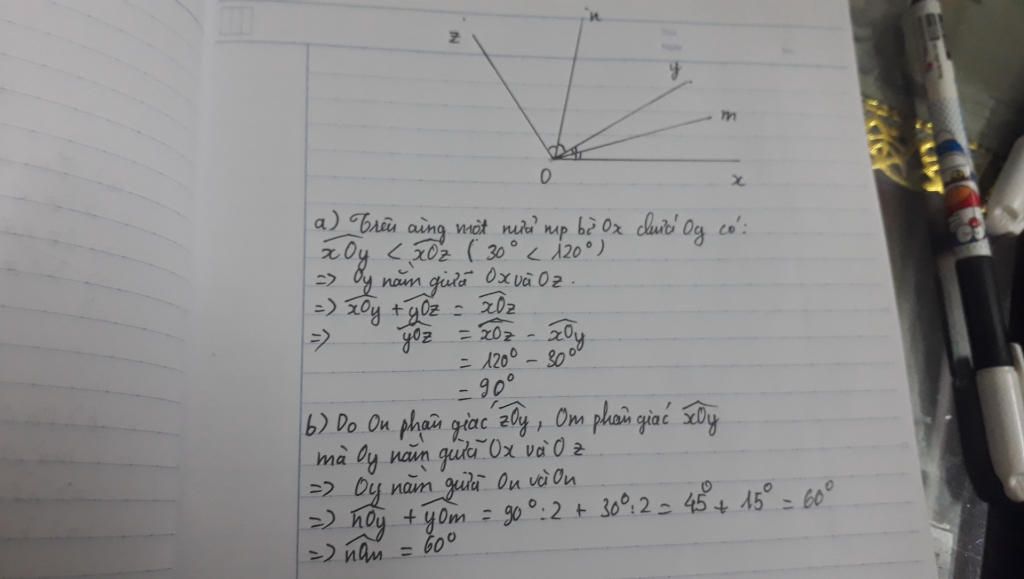 n
z
y
m
O
x
a) Trên cùng một nửa mp bờ Ox chứa Oy có:
xOy < xOz ( 30° < 120° )
=> Oy nằm giữa Ox và Oz.
=> xOy + yOz = xOz
=> yOz = xOz - xOy
= 120° - 30°
= 90°
b) Do On phân giác zOy, Om phân giác xOy
mà Oy nằm giữa Ox và Oz
=> Oy nằm giữa On và On
=> nOy + yOm = 90° : 2 + 30° : 2 = 45° + 15° = 60°
=> nOm = 60°